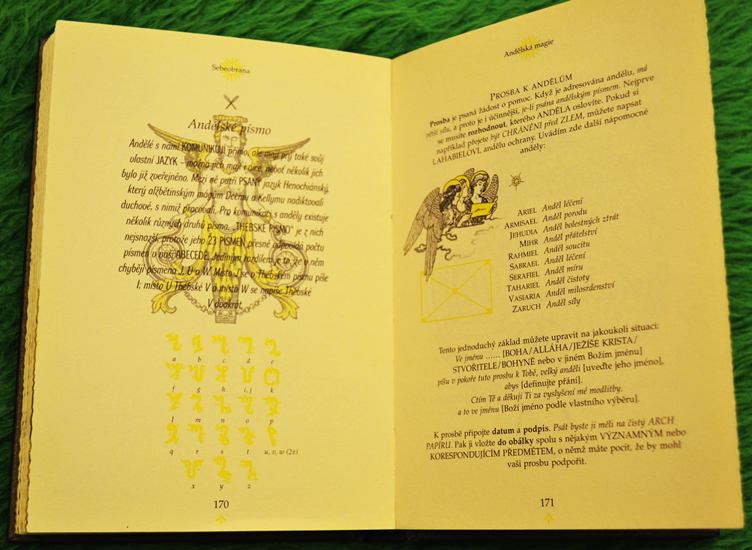 Sebeobrana
Andělské písmo
Andělé s námi KOMUNIKUJÍ přímo, ale mají prý také svůj
vlastní JAZYK – možná jich mají i více, neboť několik jich
bylo již zveřejněno. Mezi ně patří PSANÝ jazyk Henochiánský,
který alžbětinským mágům Deemu a Kellymu nadiktovali
duchové, s nimiž pracovali. Pro komunikaci s anděly existuje
několik různých druhů písma. „THÉBSKÉ PÍSMO" je z nich
nejsnazší, protože jeho 23 PÍSMEN přesně odpovídá počtu
písmen v naší ABECEDĚ. Jediným rozdílem je to, že v něm
chybějí písmena J, U a W. Místo J se v Thébském písmu píše
I; místo U Thébské V a místo W se napíše Thébské
V dvakrát.
a b c d e
f g h i, j k
l m n o p
q r s t u, v, w (2x)
x y z
170
Andělská magie
PROSBA K ANDĚLŮM
Prosba je psaná žádost o pomoc. Když je adresována andělu, má
větší sílu, a proto je i účinnější, je-li psána andělským písmem. Nejprve
se musíte rozhodnout, kterého ANDĚLA oslovíte. Pokud si
například přejete být CHRÁNĚNI před ZLEM, můžete napsat
LAHABIELOVI, andělu ochrany. Uvádím zde další nápomocné
anděly:
ARIEL Anděl léčení
ARMISAEL Anděl porodu
JEHUDIA Anděl bolestných ztrát
MIHR Anděl přátelství
RAHMIEL Anděl soucitu
SABRAEL Anděl léčení
SERAFIEL Anděl míru
TAHARIEL Anděl čistoty
VASIARIA Anděl milosrdenství
ZARUCH Anděl síly
Tento jednoduchý základ můžete upravit na jakoukoli situaci:
Ve jménu ...... [BOHA/ALLÁHA/JEŽÍŠE KRISTA/
STVOŘITELE/BOHYNĚ nebo v jiném Božím jménu]
píši v pokoře tuto prosbu k Tobě, velký anděli [uveďte jeho jméno],
abys [definujte přání].
Ctím Tě a děkuji Ti za vyslyšení mé modlitby,
a to ve jménu [Boží jméno podle vlastního výběru].
K prosbě připojte datum a podpis. Psát byste ji měli na čistý ARCH
PAPÍRU. Pak ji vložte do obálky spolu s nějakým VÝZNAMNÝM nebo
KORESPONDUJÍCÍM PŘEDMĚTEM, o němž máte pocit, že by mohl
vaši prosbu podpořit.
171